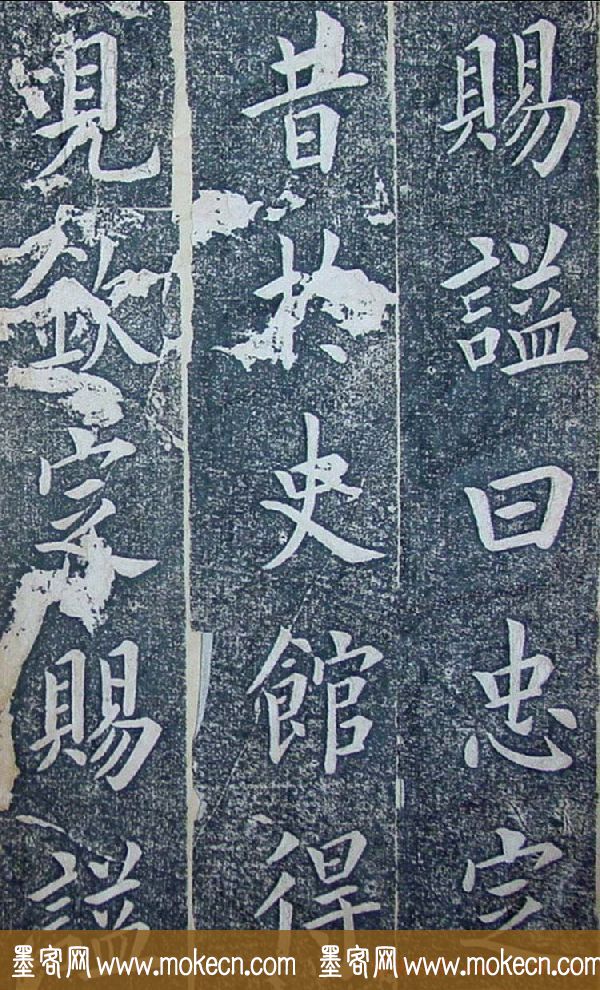 賜謚曰忠定
昔於史館得
見欽宗賜謚
墨客网 www.mokecn.com 墨客网 www.mokecn.com